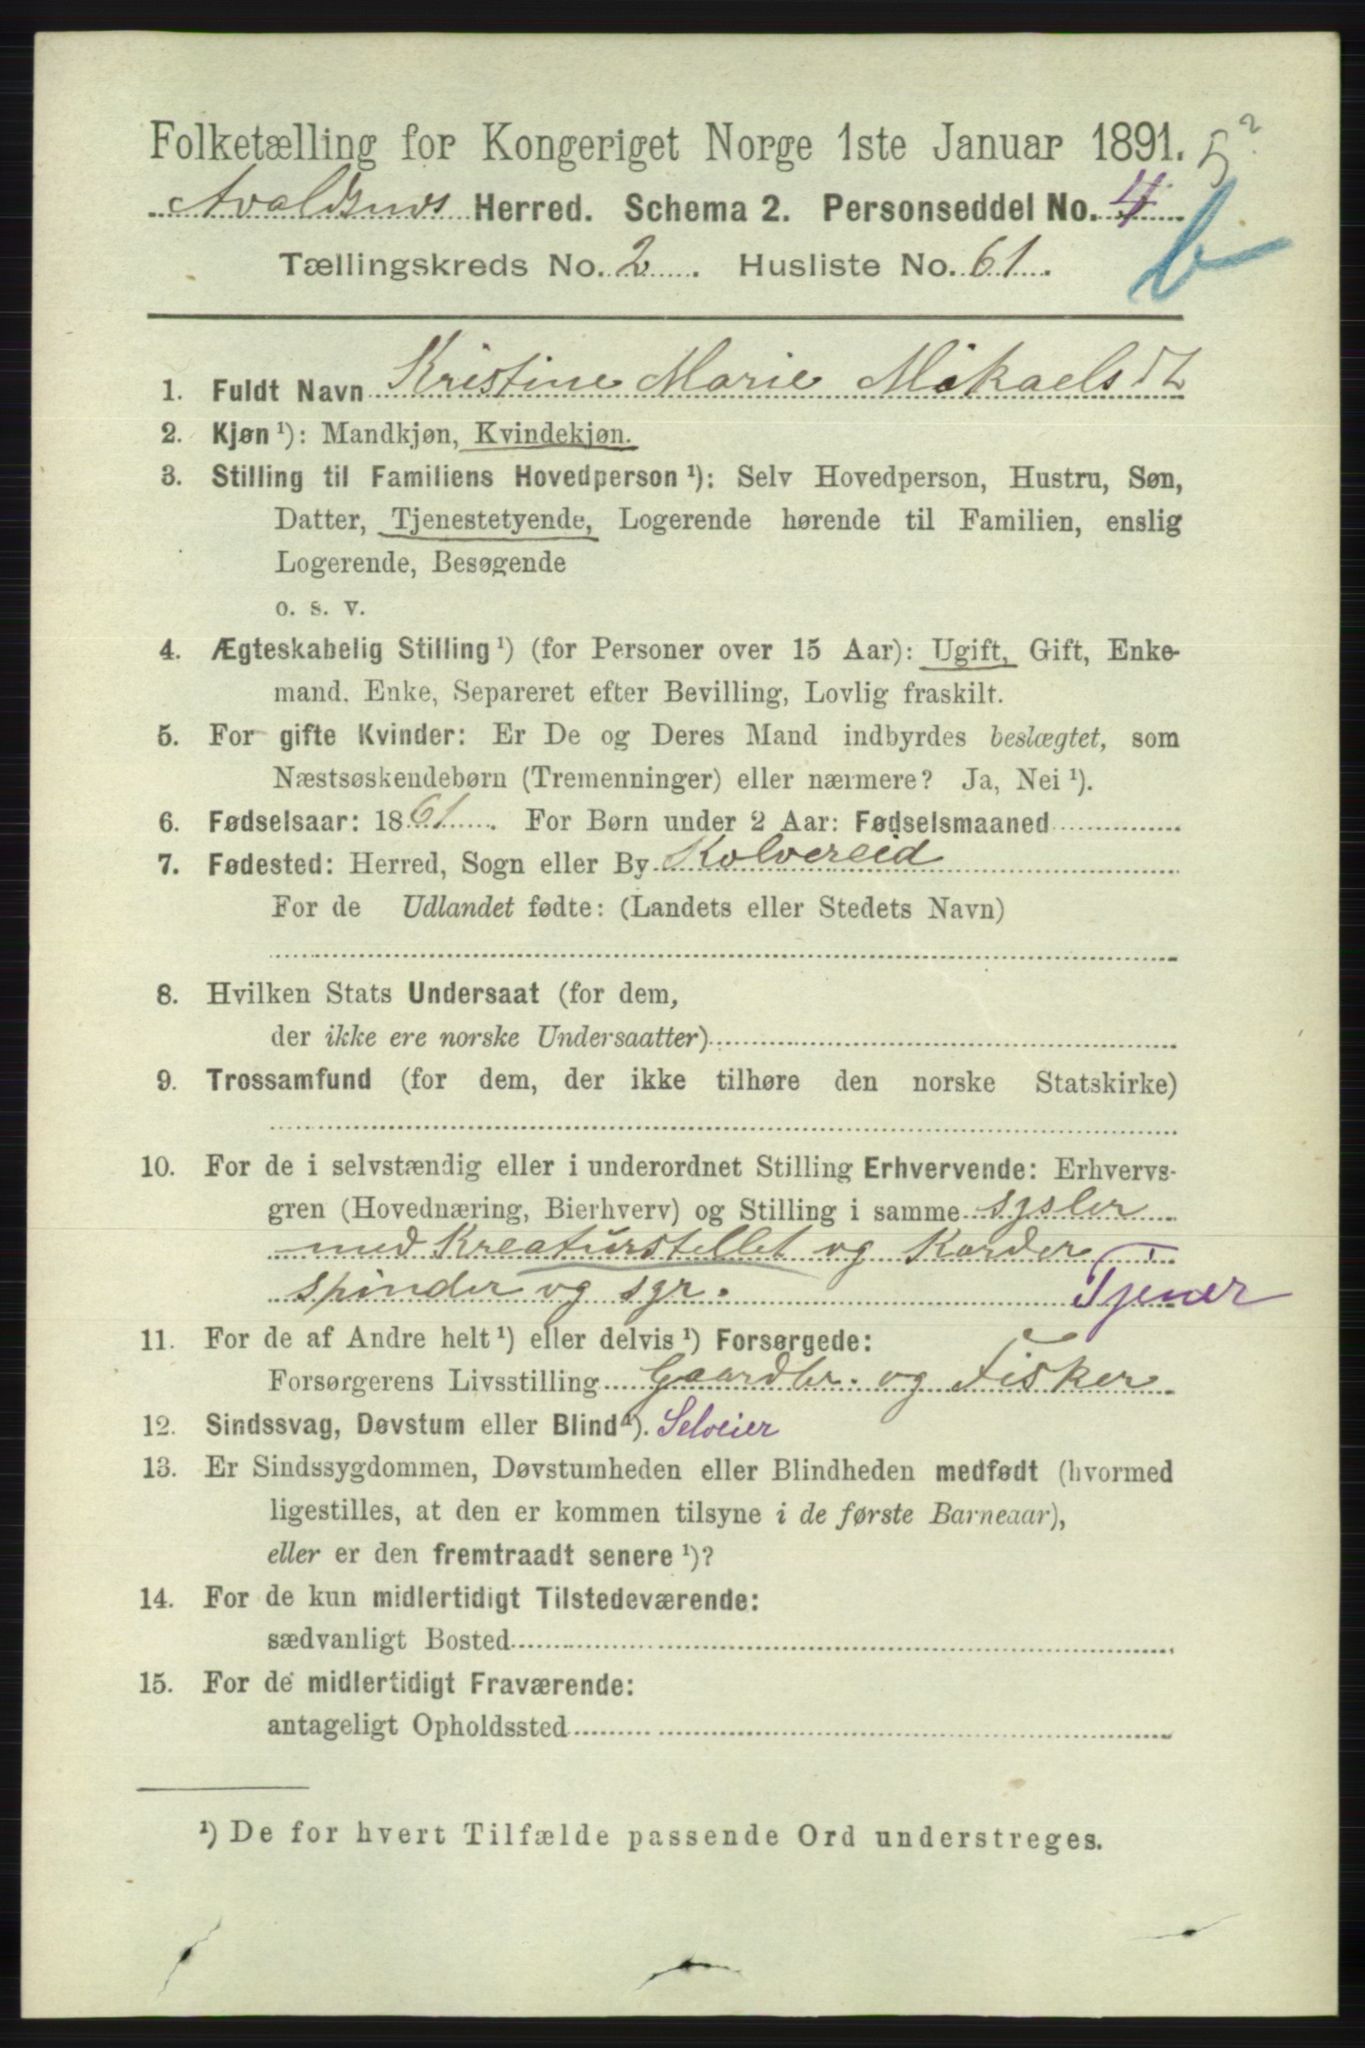 Folketælling for Kongeriget Norge 1ste Januar 1891. 5²
Avaldsnes Herred. Schema 2. Personseddel No. 4
Tællingskreds No. 2. Husliste No. 61. b
1. Fuldt Navn Kristine Marie Mikaelsdt
2. Kjøn ¹): Mandkjøn, Kvindekjøn.
3. Stilling til Familiens Hovedperson ¹): Selv Hovedperson, Hustru, Søn,
Datter, Tjenestetyende, Logerende hørende til Familien, enslig
Logerende, Besøgende
o. s. v.
4. Ægteskabelig Stilling ¹) (for Personer over 15 Aar): Ugift, Gift, Enke-
mand. Enke, Separeret efter Bevilling, Lovlig fraskilt.
5. For gifte Kvinder: Er De og Deres Mand indbyrdes beslægtet, som
Næstsøskendebørn (Tremenninger) eller nærmere? Ja, Nei ¹).
6. Fødselsaar: 1861. For Børn under 2 Aar: Fødselsmaaned
7. Fødested: Herred, Sogn eller By Kolvereid
For de Udlandet fødte: (Landets eller Stedets Navn)
8. Hvilken Stats Undersaat (for dem,
der ikke ere norske Undersaatter)
9. Trossamfund (for dem, der ikke tilhøre den norske Statskirke)
10. For de i selvstændig eller i underordnet Stilling Erhvervende: Erhvervs-
gren (Hovednæring, Bierhverv) og Stilling i samme sysler
med Kreaturstellet og Karder
spinder og syr. Tjener
11. For de af Andre helt ¹) eller delvis ¹) Forsørgede:
Forsørgerens Livsstilling Gaardbr. og Fisker
12. Sindssvag, Døvstum eller Blind ¹). Selveier
13. Er Sindssygdommen, Døvstumheden eller Blindheden medfødt (hvormed
ligestilles, at den er kommen tilsyne i de første Barneaar),
eller er den fremtraadt senere ¹)?
14. For de kun midlertidigt Tilstedeværende:
sædvanligt Bosted
15. For de midlertidigt Fraværende:
antageligt Opholdssted
¹) De for hvert Tilfælde passende Ord understreges.